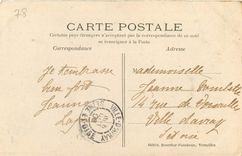 78
CARTE POSTALE
Certains pays étrangers n'acceptent pas la correspondance de ce côté
se renseigner à la Poste
Correspondance
Adresse
je t'embrasse
bien fort
Jeanne
Mademoiselle
Jeanne
4 rue de Versailles
Ville d'avray
S et oise